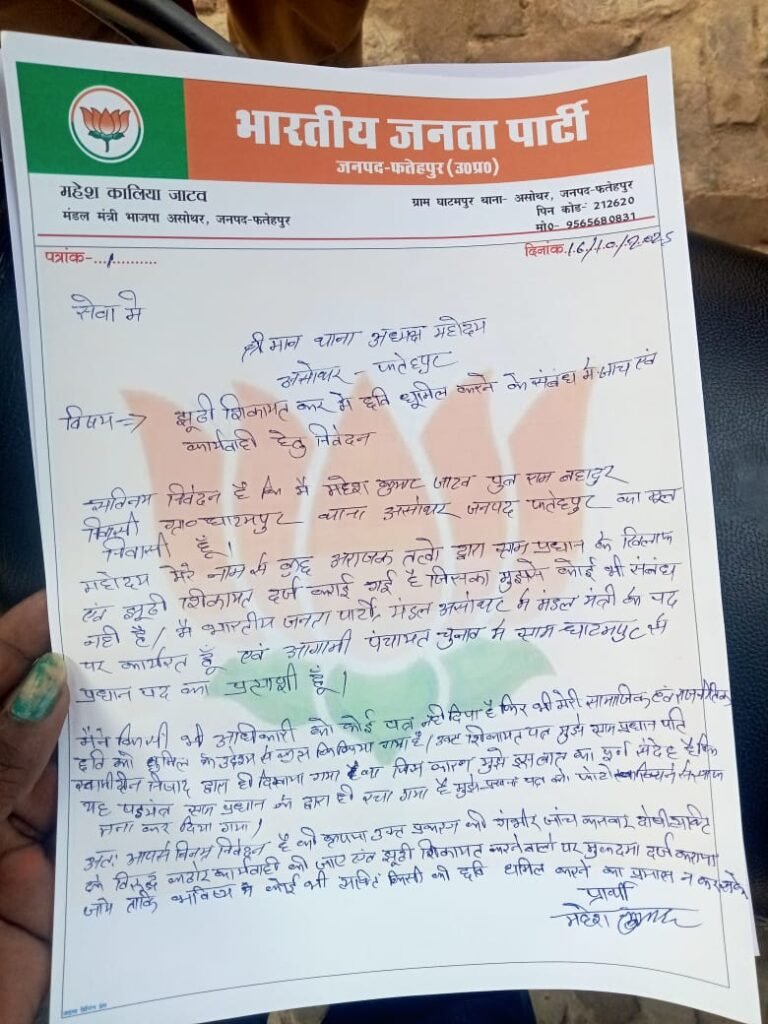 भारतीय जनता पार्टी
जनपद-फतेहपुर (उ०प्र०)
महेश कालिया जाटव
मंडल मंत्री भाजपा असोथर, जनपद-फतेहपुर
ग्राम घाटमपुर थाना- असोथर, जनपद-फतेहपुर
पिन कोड- 212620
मो०- 9565680831
पत्रांक-...1..........
दिनांक 16/10/2025
सेवा मे
श्रीमान थाना अध्यक्ष महोदय
असोथर - फतेहपुर
विषय => झूठी शिकायत कर मे छवि धूमिल करने के संबंध मे जांच एवं
कार्यवाही हेतु निवेदन
सविनय निवेदन है कि मै महेश कुमार जाटव पुत्र राम बहादुर
निवासी ग्रा० घाटमपुर थाना असोथर जनपद फतेहपुर का मूल
निवासी हूँ।
महोदय मेरे नाम से कुछ अराजक तत्वो द्वारा ग्राम प्रधान के खिलाफ
एंव झूठी शिकायत दर्ज कराई गई है जिसका मुझसे कोई भी संबंध
नही है। मै भारतीय जनता पार्टी मंडल असोथर मे मंडल मंत्री के पद
पर कार्यरत हूँ एवं आगामी पंचायत चुनाव मे ग्राम घाटमपुर से
प्रधान पद का प्रत्याशी हूँ।
मैंने किसी भी अधिकारी को कोई पत्र नही दिया है फिर भी मेरी सामाजिक एवं राजनीतिक
छवि को धूमिल के उद्देश्य से किया गया है। उक्त शिकायत पत्र मुझे ग्राम प्रधान पति
निषाद द्वारा ही दिखाया गया है जिस कारण मुझे इस बात का पूर्ण संदेह है कि
यह षड्यंत्र ग्राम प्रधान के द्वारा ही रचा गया है मुझे पत्र की फोटो
मना कर दिया गया।
अतः आपसे विनम्र निवेदन है की कृपया उक्त प्रकरण की गंभीर जांच करवाकर दोषी व्यक्ति
के विरुद्ध कठोर कार्यवाही की जाए एंव झूठी शिकायत करने वालो पर मुकदमा दर्ज कराया
जाये ताकि भविष्य मे कोई भी व्यक्ति किसी की छवि धूमिल करने का प्रयास न कर सके
प्रार्थी
महेश कुमार